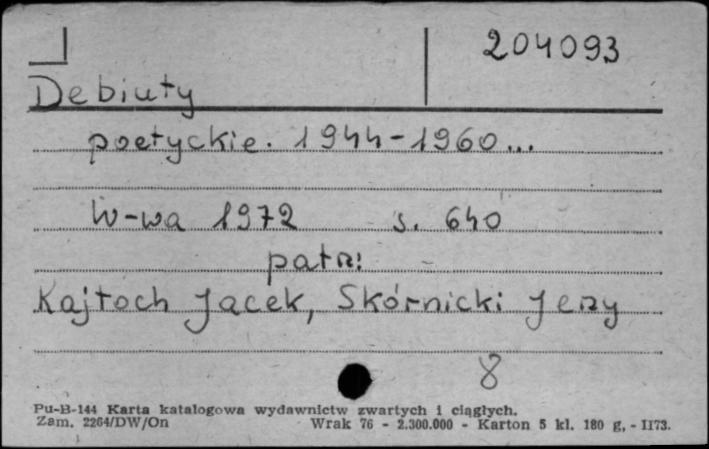 204093
Debiuty
poetyckie. 1944-1960...
W-wa 1972 s. 640
patrz:
Kajtoch Jacek, Skórnicki Jerzy
8
Pu-B-144 Karta katalogowa wydawnictw zwartych i ciągłych.
Zam. 2264/DW/On Wrak 76 - 2.300.000 - Karton 5 kl. 180 g, - II73.